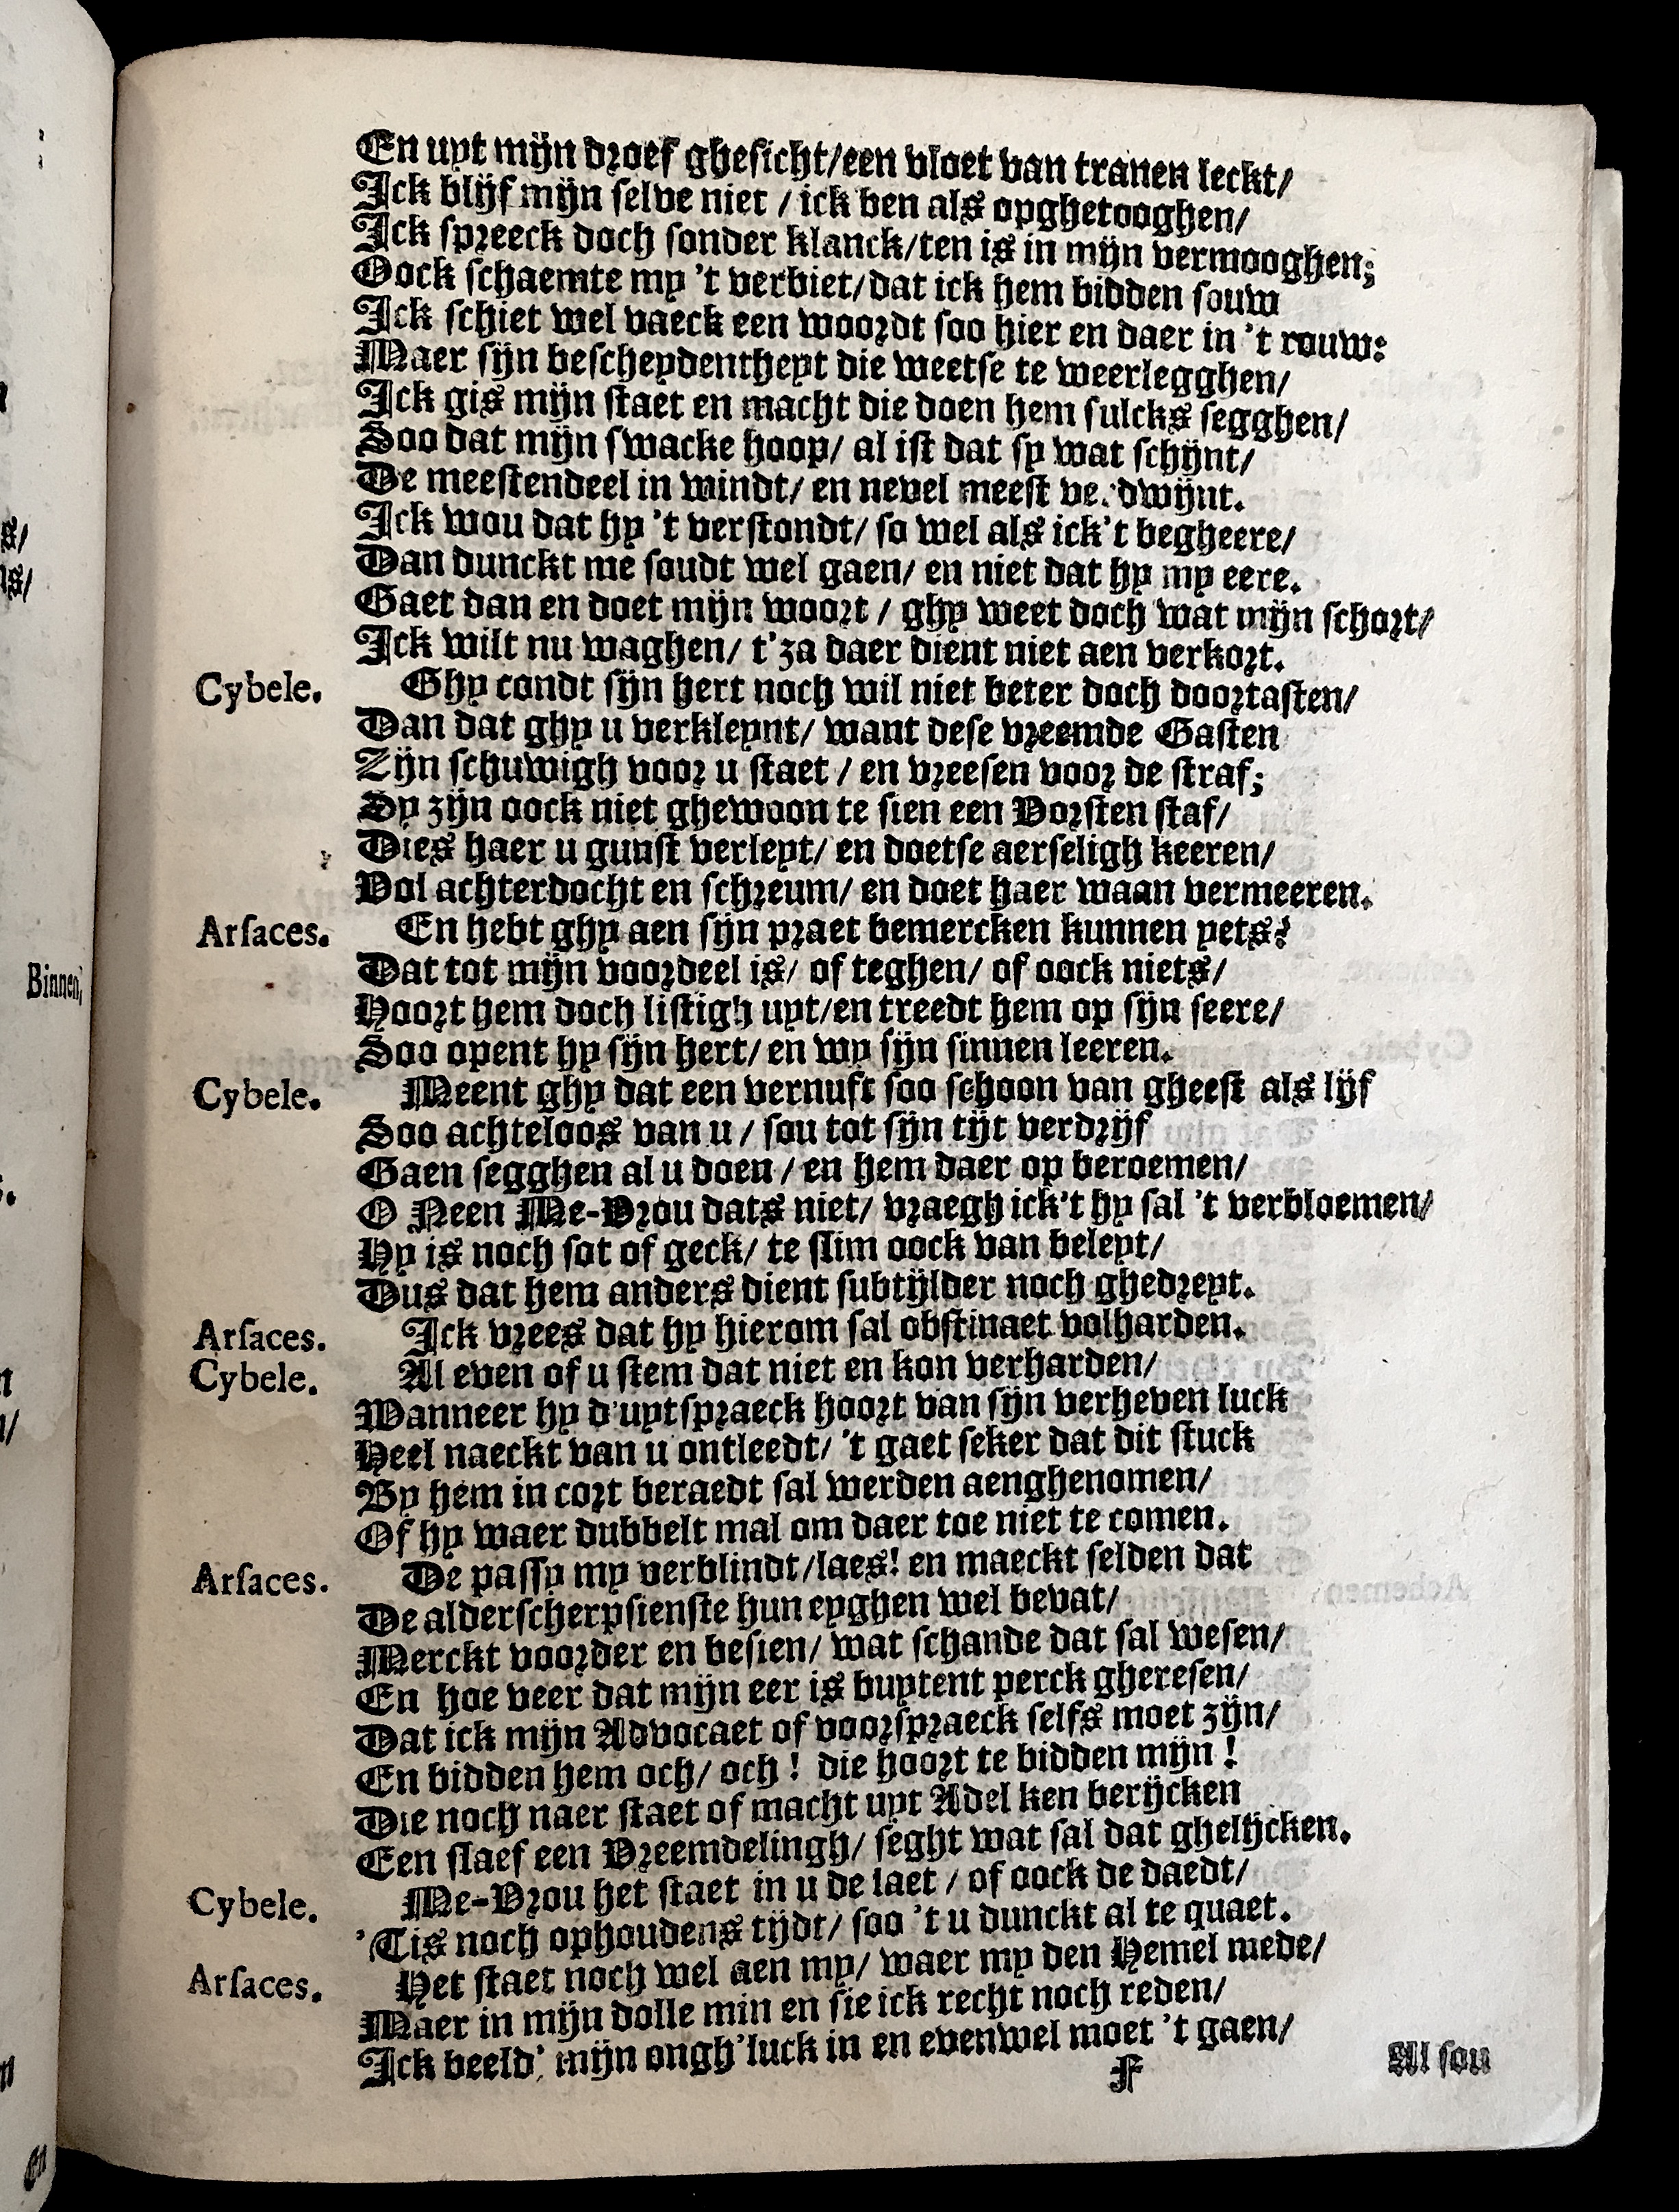 En uyt mijn droef ghesicht/een vloet van tranen leckt/
Ick blijf mijn selve niet / ick ben als opghetooghen/
Ick spreeck doch sonder klanck/ten is in mijn vermooghen;
Oock schaemte my 't verbiet/dat ick hem bidden souw
Ick schiet wel vaeck een woordt soo hier en daer in 't rouw:
Maer sijn bescheydentheyt die weetse te weerlegghen/
Ick gis mijn staet en macht die doen hem sulcks segghen/
Soo dat mijn swacke hoop/ al ist dat sy wat schijnt/
De meestendeel in windt/ en nevel meest verdwijnt.
Ick wou dat hy 't verstondt/ so wel als ick't begheere/
Dan dunckt me soudt wel gaen/ en niet dat hy my eere.
Gaet dan en doet mijn woort / ghy weet doch wat mijn schort/
Ick wilt nu waghen/ t'za daer dient niet aen verkort.
Cybele. Ghy condt sijn hert noch wil niet beter doch doortasten/
Dan dat ghy u verkleynt/ want dese vreemde Gasten
Zijn schuwigh voor u staet / en vreesen voor de straf;
Sy zijn oock niet ghewoon te sien een Vorsten staf/
Dies haer u gunst verleyt/ en doetse aerseligh keeren/
Vol achterdocht en schreum/ en doet haer waan vermeeren.
Arsaces. En hebt ghy aen sijn praet bemercken kunnen yets?
Dat tot mijn voordeel is/ of teghen/ of oock niets/
Hoort hem doch listigh uyt/en treedt hem op sijn seere/
Soo opent hy sijn hert/ en wy sijn sinnen leeren.
Cybele. Meent ghy dat een vernuft soo schoon van gheest als lijf
Soo achteloos van u / sou tot sijn tijt verdrijf
Gaen segghen al u doen / en hem daer op beroemen/
O Neen Me-Vrou dats niet/ vraegh ick't hy sal 't verbloemen/
Hy is noch sot of geck/ te slim oock van beleyt/
Dus dat hem anders dient subtijlder noch ghedreyt.
Arsaces. Ick vrees dat hy hierom sal obstinaet volharden.
Cybele. Al even of u stem dat niet en kon verharden/
Wanneer hy d'uytspraeck hoort van sijn verheven luck
Heel naeckt van u ontleedt/ 't gaet seker dat dit stuck
By hem in cort beraedt sal werden aenghenomen/
Of hy waer dubbelt mal om daer toe niet te comen.
Arsaces. De passy my verblindt/laes! en maeckt selden dat
De alderscherpsienste hun eyghen wel bevat/
Merckt voorder en besien/ wat schande dat sal wesen/
En hoe veer dat mijn eer is buytent perck gheresen/
Dat ick mijn Advocaet of voorspraeck selfs moet zijn/
En bidden hem och/ och! die hoort te bidden mijn!
Die noch naer staet of macht uyt Adel ken berijcken
Een slaef een Vreemdelingh/ seght wat sal dat ghelijcken.
Cybele. Me-Vrou het staet in u de laet / of oock de daedt/
'Tis noch ophoudens tijdt/ soo 't u dunckt al te quaet.
Arsaces. Het staet noch wel aen my/ waer my den Hemel mede/
Maer in mijn dolle min en sie ick recht noch reden/
Ick beeld' mijn ongh'luck in en evenwel moet 't gaen/
F
Al sou
s/
ns/
Binnen